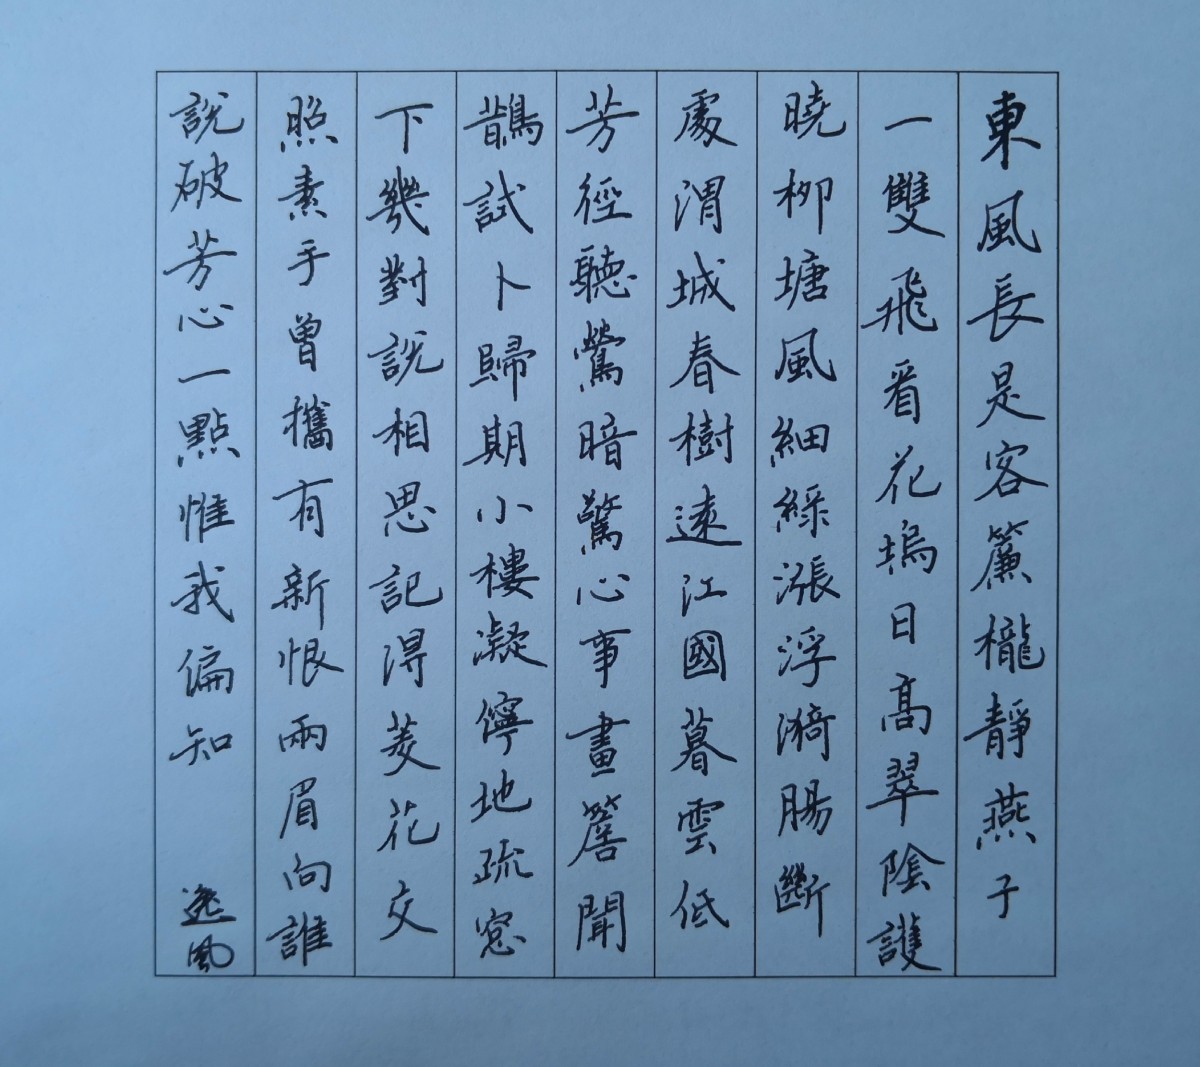 東風長是客簾櫳靜燕子
一雙飛看花塢日高翠陰護
曉柳塘風細綠漲浮漪腸斷
處渭城春樹遠江國暮雲低
芳徑聽鶯暗驚心事畫簷聞
鵲試卜歸期小樓凝儜地疏窓
下幾對説相思記得菱花交
照素手曾攜有新恨兩眉向誰
説破芳心一點惟我偏知
逸風